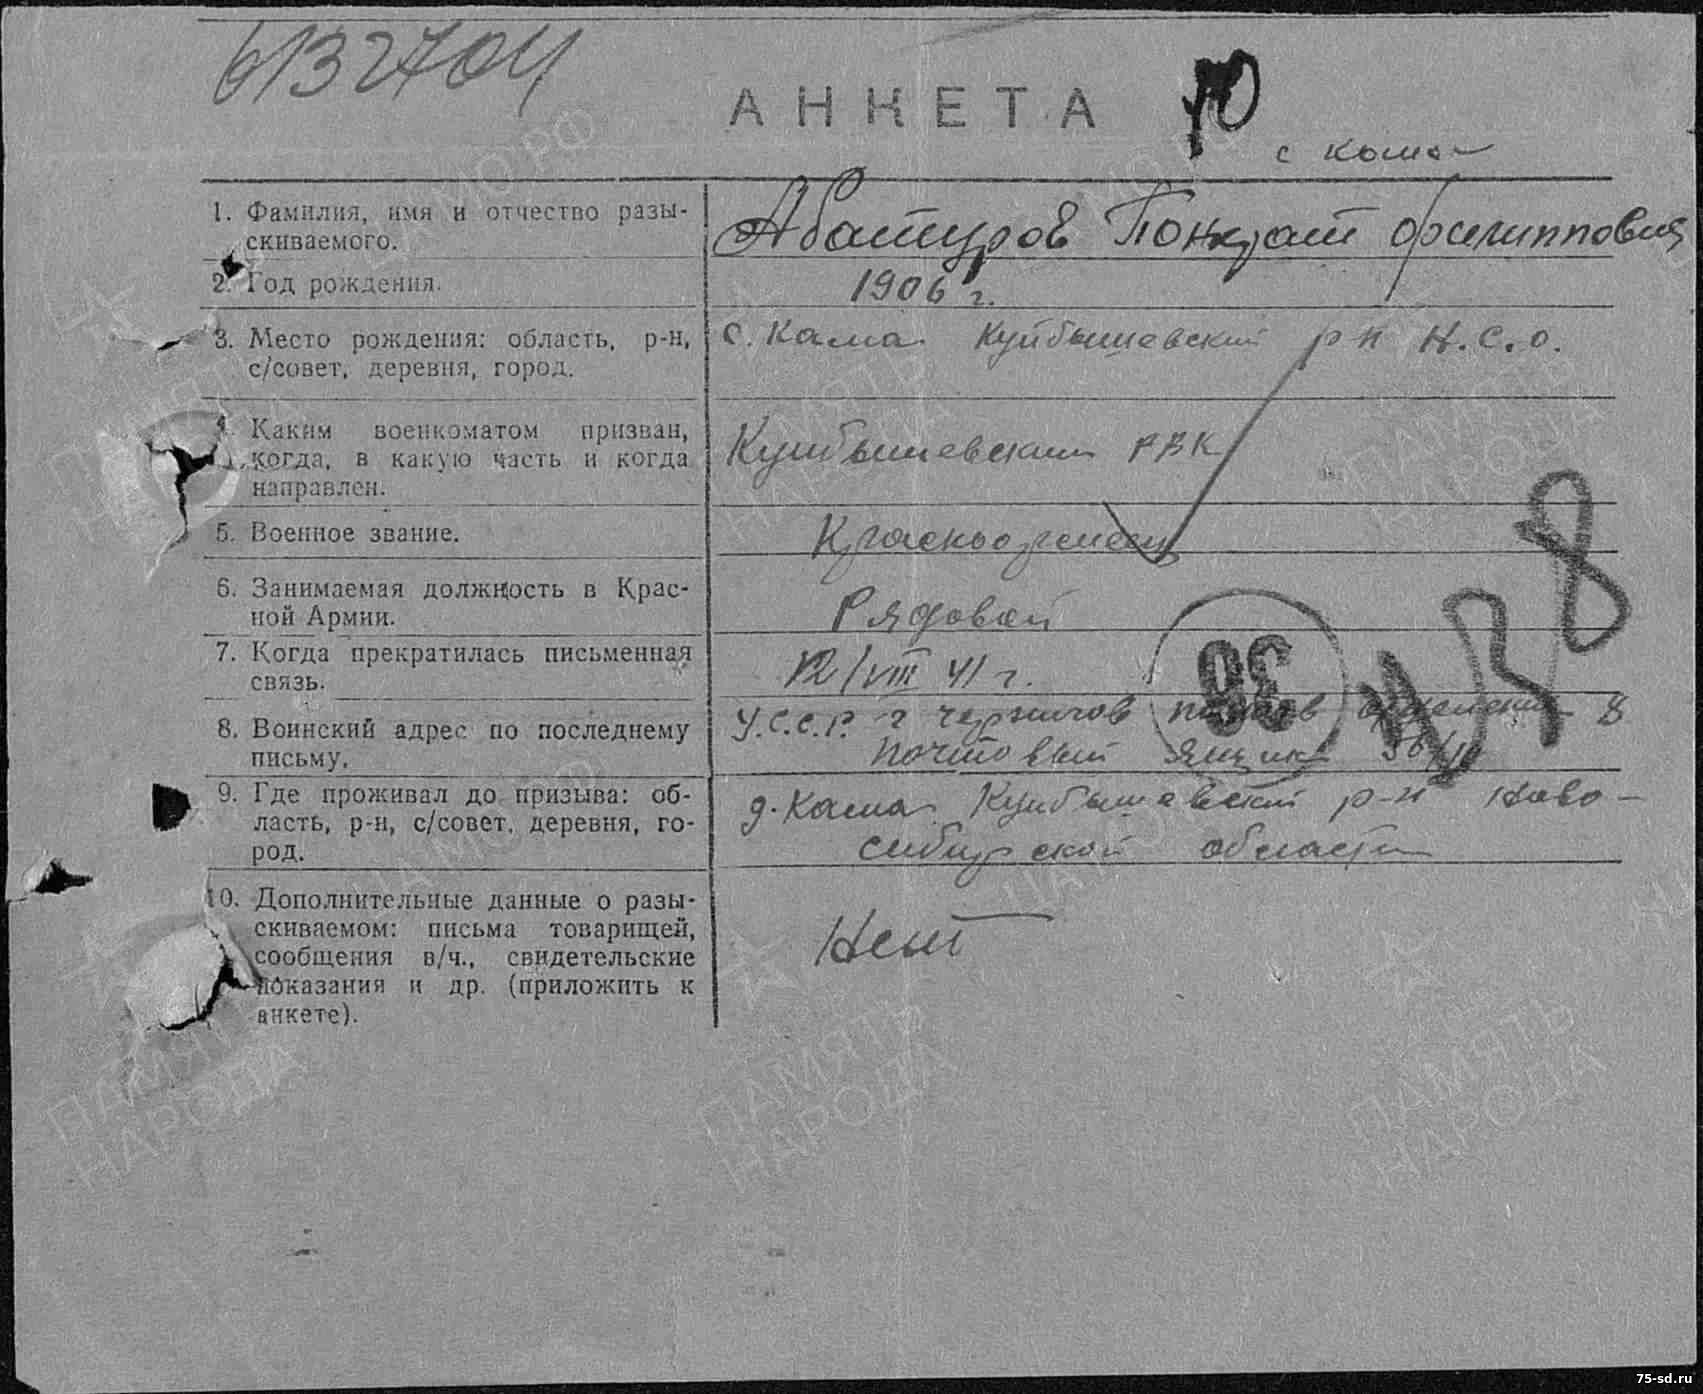 613704
АНКЕТА 10
с Кама
1. Фамилия, имя и отчество разы-
скиваемого.
Абатуров Понкрат Филиппович
2. Год рождения.
1906 г.
3. Место рождения: область, р-н,
с/совет, деревня, город.
с. Кама Куйбышевский р-н Н.С.О.
4. Каким военкоматом призван,
когда, в какую часть и когда
направлен.
Куйбышевским РВК
5. Военное звание.
Красноармеец
6. Занимаемая должность в Крас-
ной Армии.
Рядовой
7. Когда прекратилась письменная
связь.
12/VIII 41 г.
8. Воинский адрес по последнему
письму.
У.С.С.Р. г Чернигов отделение 8
почтовый ящик
36
9. Где проживал до призыва: об-
ласть, р-н, с/совет, деревня, го-
род.
д. Кама Куйбышевский р-н Ново-
сибирской области
10. Дополнительные данные о разы-
скиваемом: письма товарищей,
сообщения в/ч., свидетельские
показания и др. (приложить к
анкете).
Нет
ПАМЯТЬ
НАРОДА
75-sd.ru